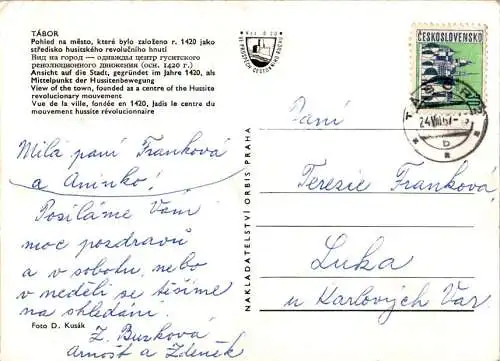 TÁBOR
Pohled na město, které bylo založeno r. 1420 jako
středisko husitského revolučního hnutí
Вид на город — однажды центр гуситского
революционного движения (осн. 1420 г.)
Ansicht auf die Stadt, gegründet im Jahre 1420, als
Mittelpunkt der Hussitenbewegung
View of the town, founded as a centre of the Hussite
revolutionary movement
Vue de la ville, fondée en 1420, Jadis le centre du
mouvement hussite révolutionnaire
Milá paní Franková
a Aninko!
Posíláme Vám
moc pozdravů
a v sobotu, nebo
v neděli se těšíme
na shledání.
Z. Burková
Arnošt a Zdeněk
Foto D. Kusák
NAKLADATELSTVÍ ORBIS PRAHA
ČESKOSLOVENSKO
TÁBOR
24.VIII.67
b
Paní
Terezie Franková
Luka
u Karlových Var